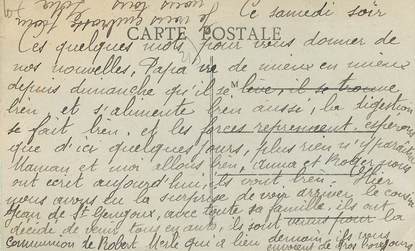 Ce samedi soir
CARTE POSTALE
Ces quelques mots pour vous donner de
nos nouvelles, Papa va de mieux en mieux
depuis dimanche qu'il se lève, il se trouve
bien, et s'alimente bien aussi, la digestion
se fait bien. et les forces reprennent. espérons
que d'ici quelques jours, plus rien n'y paraîtra
Maman et moi allons bien, Anna et Roger nous
ont écrit aujourd'hui, ils vont bien. Hier
nous avons eu la surprise de voir arriver le cousin
Jean de St Gengoux, avec toute sa famille ils ont
décidé de venir tous en auto, ils sont venus pour la
communion de Robert Merle qui a lieu demain, ils vous